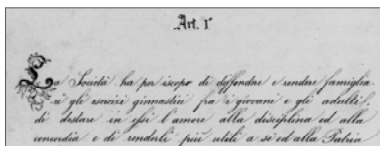 Art. 1°
La Società ha per iscopo di diffondre e rendere famiglia-
ri gli esercizi ginnastici fra i giovani e gli adulti;
di destare in essi l'amore alla disciplina ed alla
concordia e di renderli più utili a sè ed alla Patria